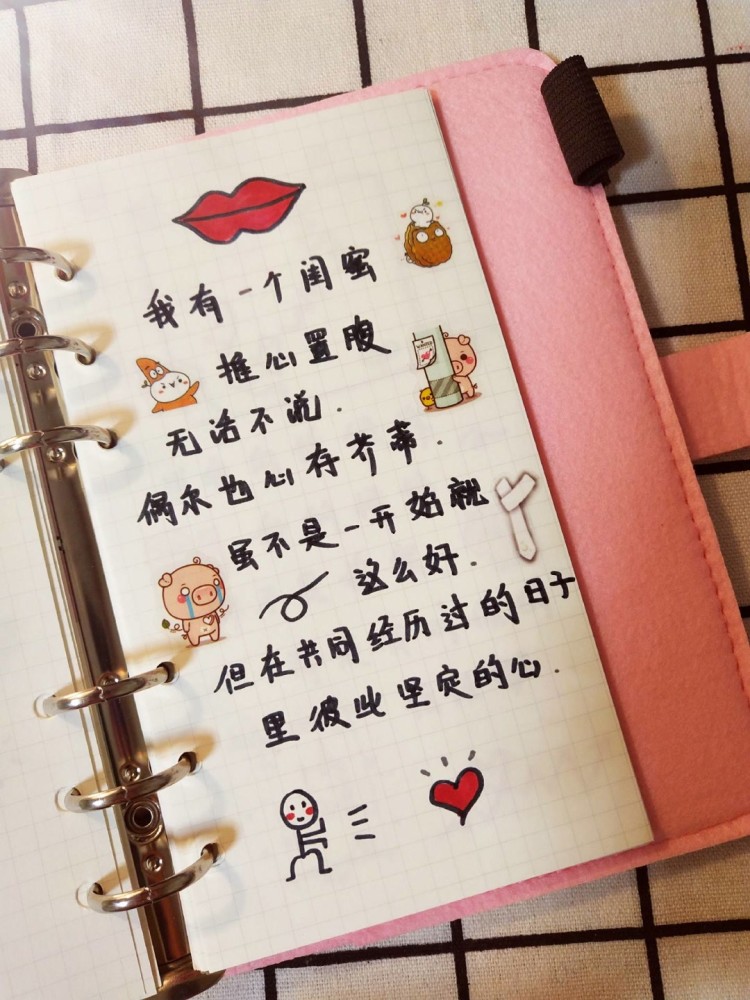 我有一个闺蜜
推心置腹
无话不说.
偶尔也心存芥蒂.
虽不是一开始就
这么好.
但在共同经历过的日子
里彼此坚定的心.